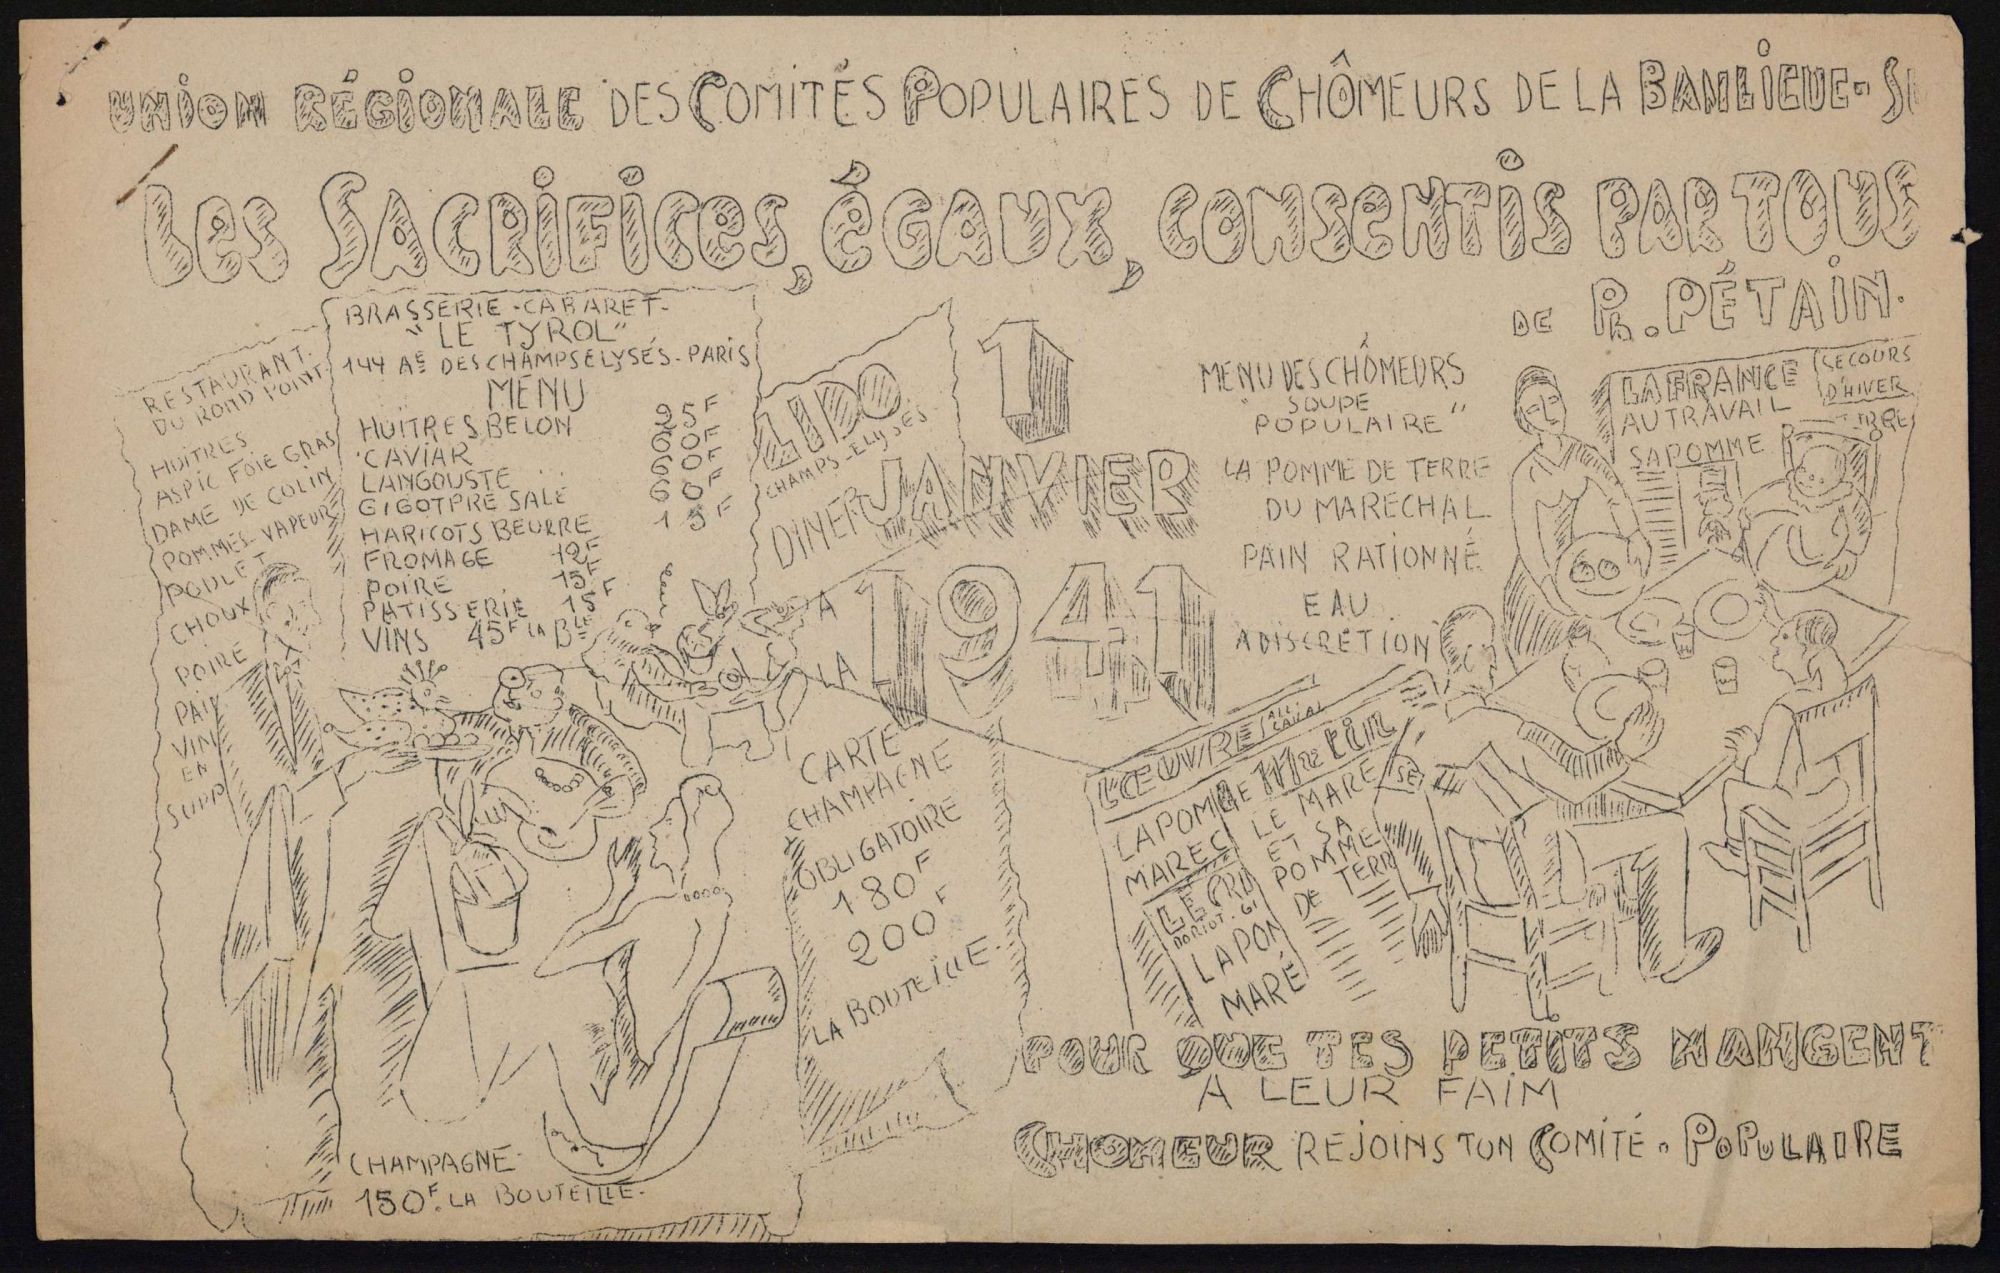 UNION RÉGIONALE DES COMITÉS POPULAIRES DE CHÔMEURS DE LA BANLIEUE-
LES SACRIFICES, ÉGAUX, CONSENTIS PAR TOUS
DE PH. PÉTAIN.
RESTAURANT.
DU ROND POINT
HUITRES
ASPIC FOIE GRAS
DAME DE COLIN
POMMES-VAPEUR
POULET
CHOUX
POIRE
PAIN
VIN
EN
SUPP
BRASSERIE-CABARET-
"LE TYROL"
144 AE DES CHAMPS ELYSÉS-PARIS
MENU
HUITRES BELON 25F
CAVIAR 60F
LANGOUSTE 60F
GIGOT PRÉ SALÉ 60F
HARICOTS BEURRE 15F
FROMAGE 12F
POIRE 15F
PATISSERIE 15F
VINS 45F LA BLE
CHAMPAGNE-
150F. LA BOUTEILLE-
LIDO
CHAMPS-ELYSÉS
DINER
A
LA
CARTE
CHAMPAGNE
OBLIGATOIRE
180F
200F
LA BOUTEILLE-
1
JANVIER
1941
MENU DES CHÔMEURS
"SOUPE
POPULAIRE"
LA POMME DE TERRE
DU MARECHAL
PAIN RATIONNÉ
EAU
A DISCRETION
LA FRANCE
AU TRAVAIL
SA POMME
SECOURS
D'HIVER
L'ŒUVRE
LA POMME
MAREC
Matin
LE MARE
ET SA
POMME
DE TERR
LE CRI
DORIOT-GI
LA POM
MARÉ
POUR QUE TES PETITS MANGENT
A LEUR FAIM
CHOMEUR REJOINS TON COMITÉ-POPULAIRE